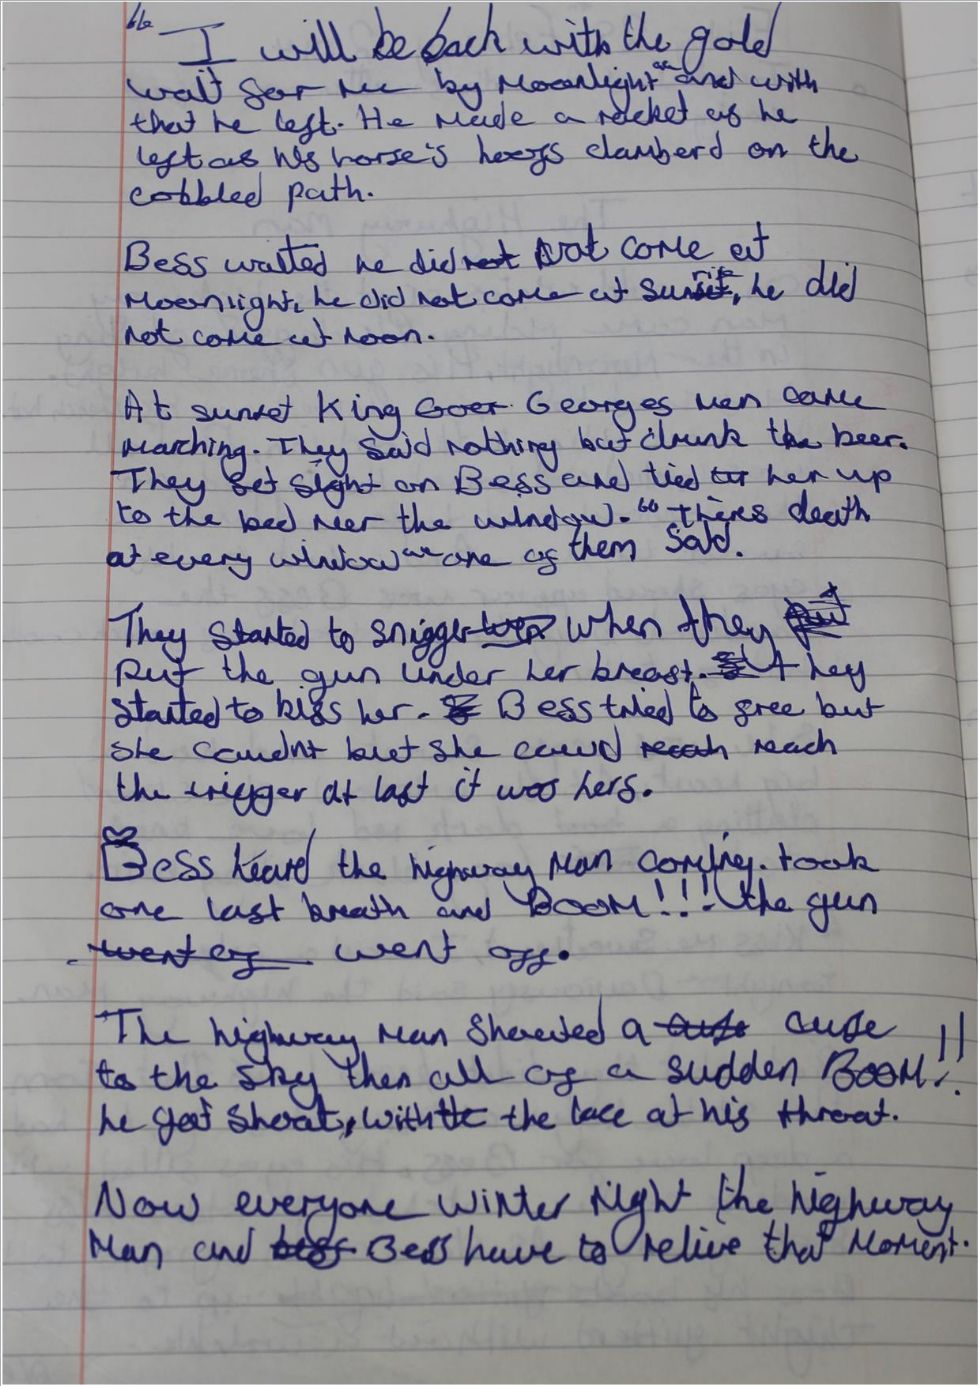 "I will be back with the gold
wait for me by Moonlight" and with
that he left. He made a racket as he
left as his horse's hoofs clamberd on the
cobbled path.
Bess waited he did not Not come at
Moonlight, he did not come at sunrise, he did
not come at noon.
At sunset King Goer Georges men came
marching. They said nothing but drunk the beer.
They set sight on Bess and tied her up
to the bed near the window. "Theirs death
at every window" one of them said.
They started to snigger when they put
put the gun under her breast. They
started to kiss her. Bess tried to free but
she coudnt but she could reach reach
the trigger at last it was hers.
Bess heard the highway man coming. took
one last breath and BOOM!!! the gun
went of went off.
The highway man shouted a cuse cuse
to the sky then all of a sudden BOOM!!!
he got shoat, with the lace at his throat.
Now everyone winter night the highway
man and bess Bess have to relive that moment.